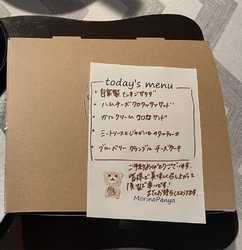 today's menu
・自家製チキンサラダ
・ハムチーズクロワッサンサンド
・カツクリームクロワサンド
・ミートソースとじゃがいもの
・ブルーベリークランブルチーズケーキ
ご予約ありがとうございます。
皆様で美味しく召し上がって
頂ければ幸いです!
またのお待ちしております。
MorinoPanya